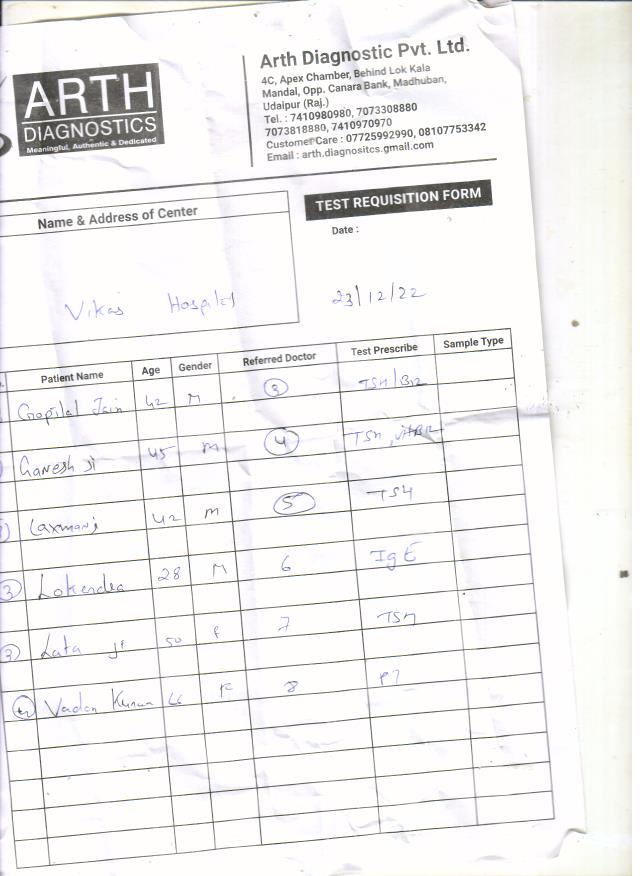 ARTH
DIAGNOSTICS
Meaningful, Authentic & Dedicated
Arth Diagnostic Pvt. Ltd.
4C, Apex Chamber, Behind Lok Kala
Mandal, Opp. Canara Bank, Madhuban,
Udaipur (Raj.)
Tel. : 7410980980, 7073308880
7073818880, 7410970970
Customer Care : 07725992990, 08107753342
Email : arth.diagnositcs.gmail.com
Name & Address of Center
TEST REQUISITION FORM
Date :
Vikas Hospital
23/12/22
Patient Name Age Gender Referred Doctor Test Prescribe Sample Type
Gopilal Jain 42 M 3 TSH/B12
Ganesh Ji 45 M 4 TSH, VitB12
Laxmanj 42 M 5 TSH
3 Lokendra 28 M 6 IgE
3 Lata Ji 50 F 7 TSH
Vadan Kunwa 66 F 8